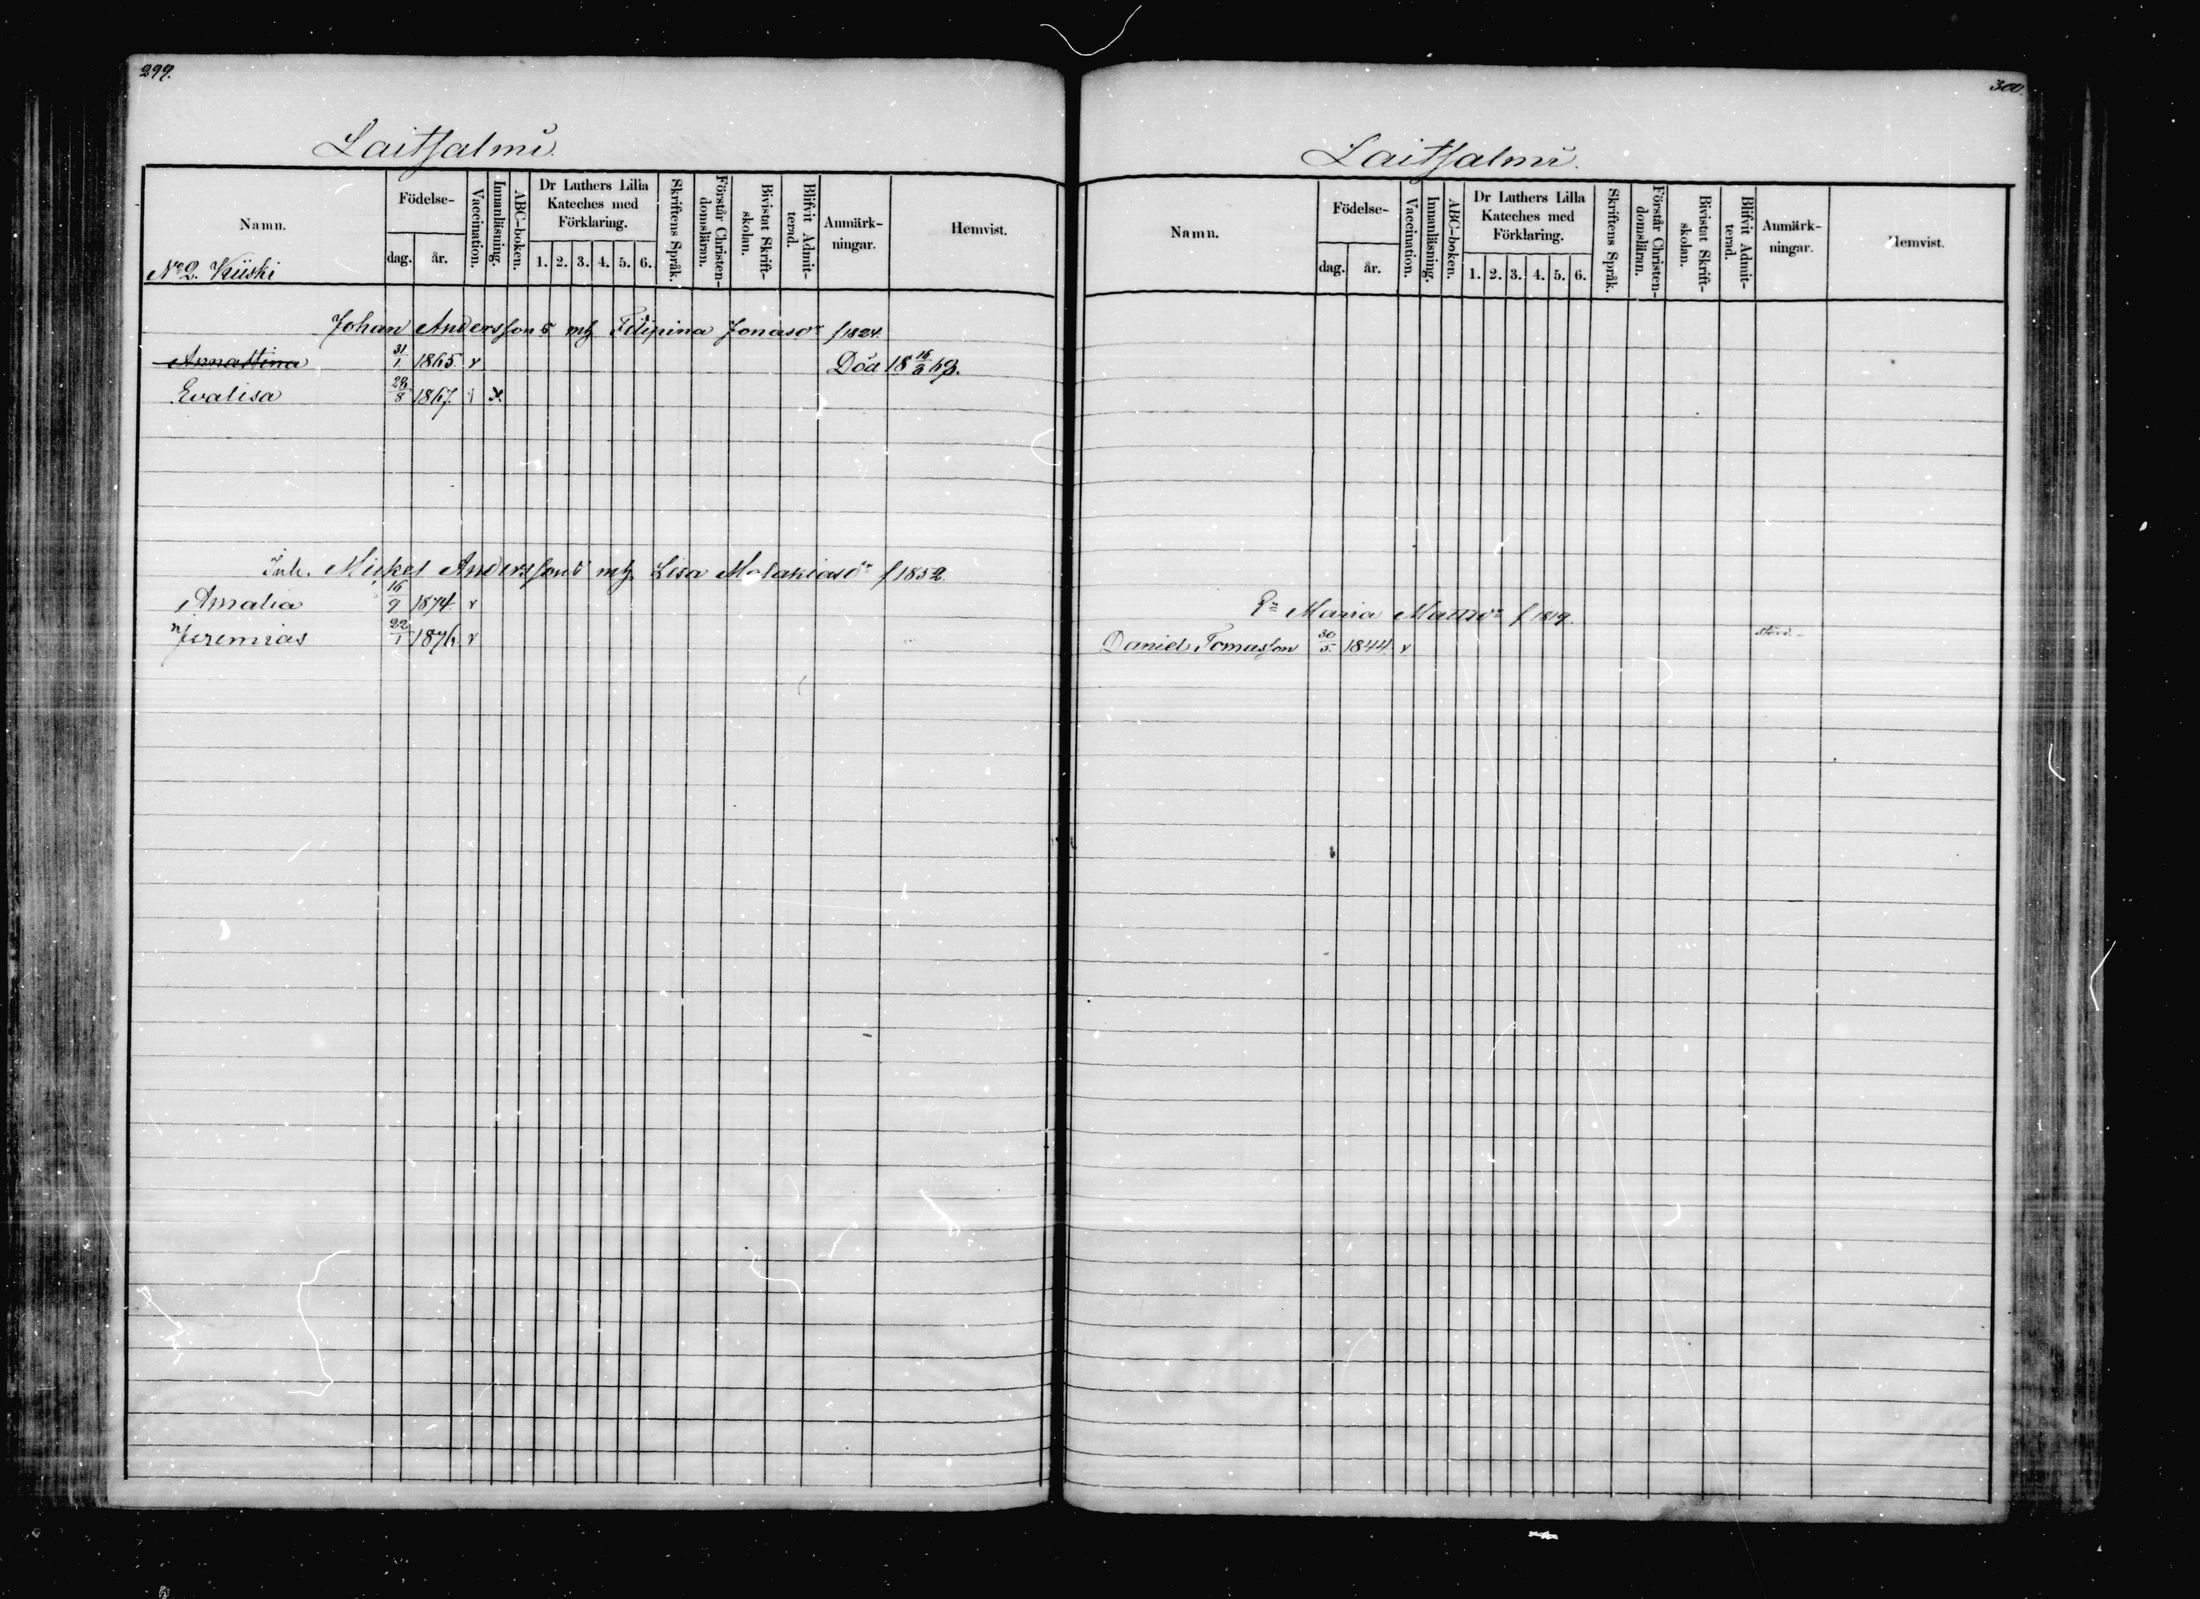 299.
Laitsalmi.
Namn.
Födelse-
dag.
år.
Vaccination.
Innanläsning.
ABC-boken.
Dr Luthers Lilla
Kateches med
Förklaring.
1. 2. 3. 4. 5. 6.
Skriftens Språk.
Förstår Christen-
domsläran.
Bivistat Skrift-
skolan.
Blifvit Admit-
terad.
Anmärk-
ningar.
Hemvist.
No 2. Kiiski
Johan Anderssons mh Filipina Jonasdr f 1824.
Annastina 31/1 1865. v Död
Evalisa 28/8 1867. x
Inh. Mickel Anderssons mh. Lisa Malakiasdr f 1852.
Amalia 16/9 1874. v
Jeremias 22/1 1876. v
300.
Laitsalmi.
Namn.
Födelse-
dag.
år.
Vaccination.
Innanläsning.
ABC-boken.
Dr Luthers Lilla
Kateches med
Förklaring.
1. 2. 3. 4. 5. 6.
Skriftens Språk.
Förstår Christen-
domsläran.
Bivistat Skrift-
skolan.
Blifvit Admit-
terad.
Anmärk-
ningar.
Hemvist.
Maria Mattsdr f 1819.
Daniel Tomasson 30/5. 1844. v